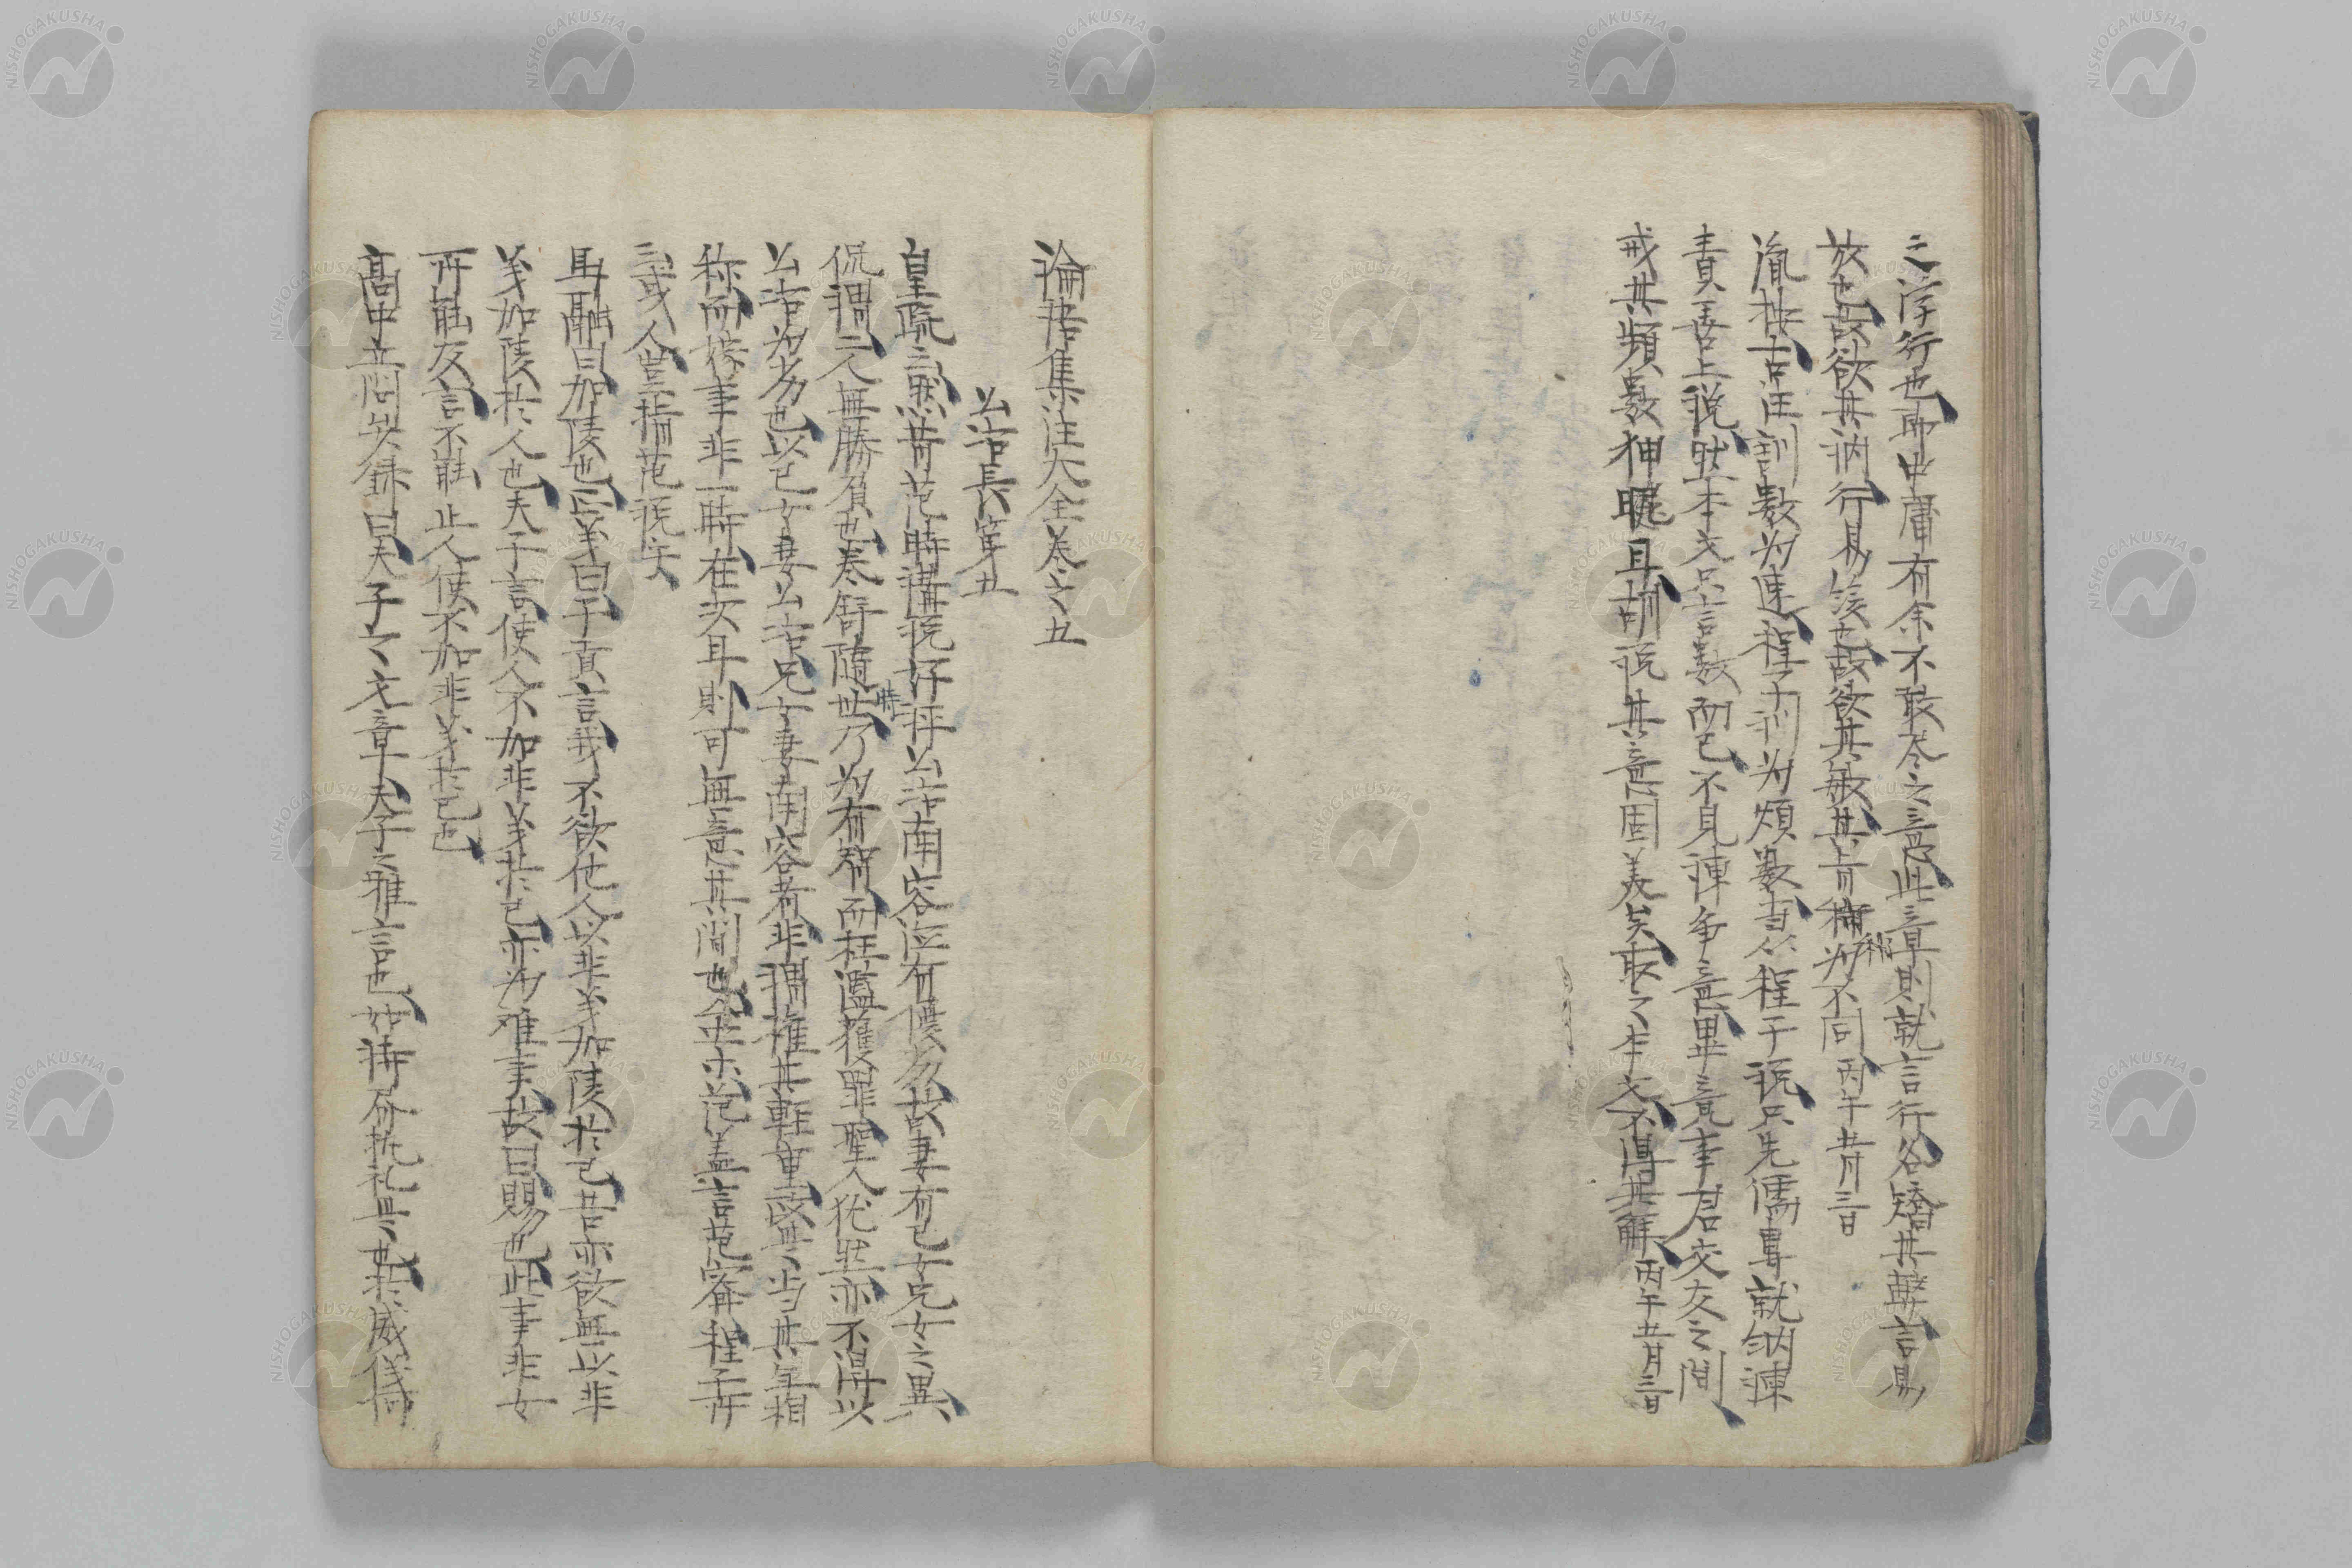 之淳行也即中庸有余不敢尽之意此章則就言行各矯其弊言易
放也故欲其訥行易緩也故欲其敏其旨稍稍為不同丙午廿月三日
胤按古注訓数為速程子訓为煩数本于程子説只先儒専就納諫
責善上説然本文只言数而已不見諫争意畢竟事君交友之間
戒其頻数狎昵耳胡説其意固美矣取之本文不得其解丙午五月三日
論語集注大全巻之五
公冶長第五
皇疏云然昔范時講説好評公冶南容徳有優劣故妻有己女兄女之異
侃謂二人無勝負也巻舒随世乃為有智而枉濫獲罪聖人猶然亦不得以
時
公冶为劣也以己女妻公冶兄女妻南容者非謂権其軽重政是当其年相
称而嫁事非一時在次耳則可無意其間也
云或人豈指范説矣
馬融曰加陵也正義曰子貢言我不欲他人以非義加陵於己吾亦欲無以非
義加陵於人也夫子言使人不加非義於己亦为难事故曰賜也此事非女
所能及言不能止人使不加非義於己也
高中玄問弁録曰夫子之文章夫子之雅言也如詩所執礼是也於威儀